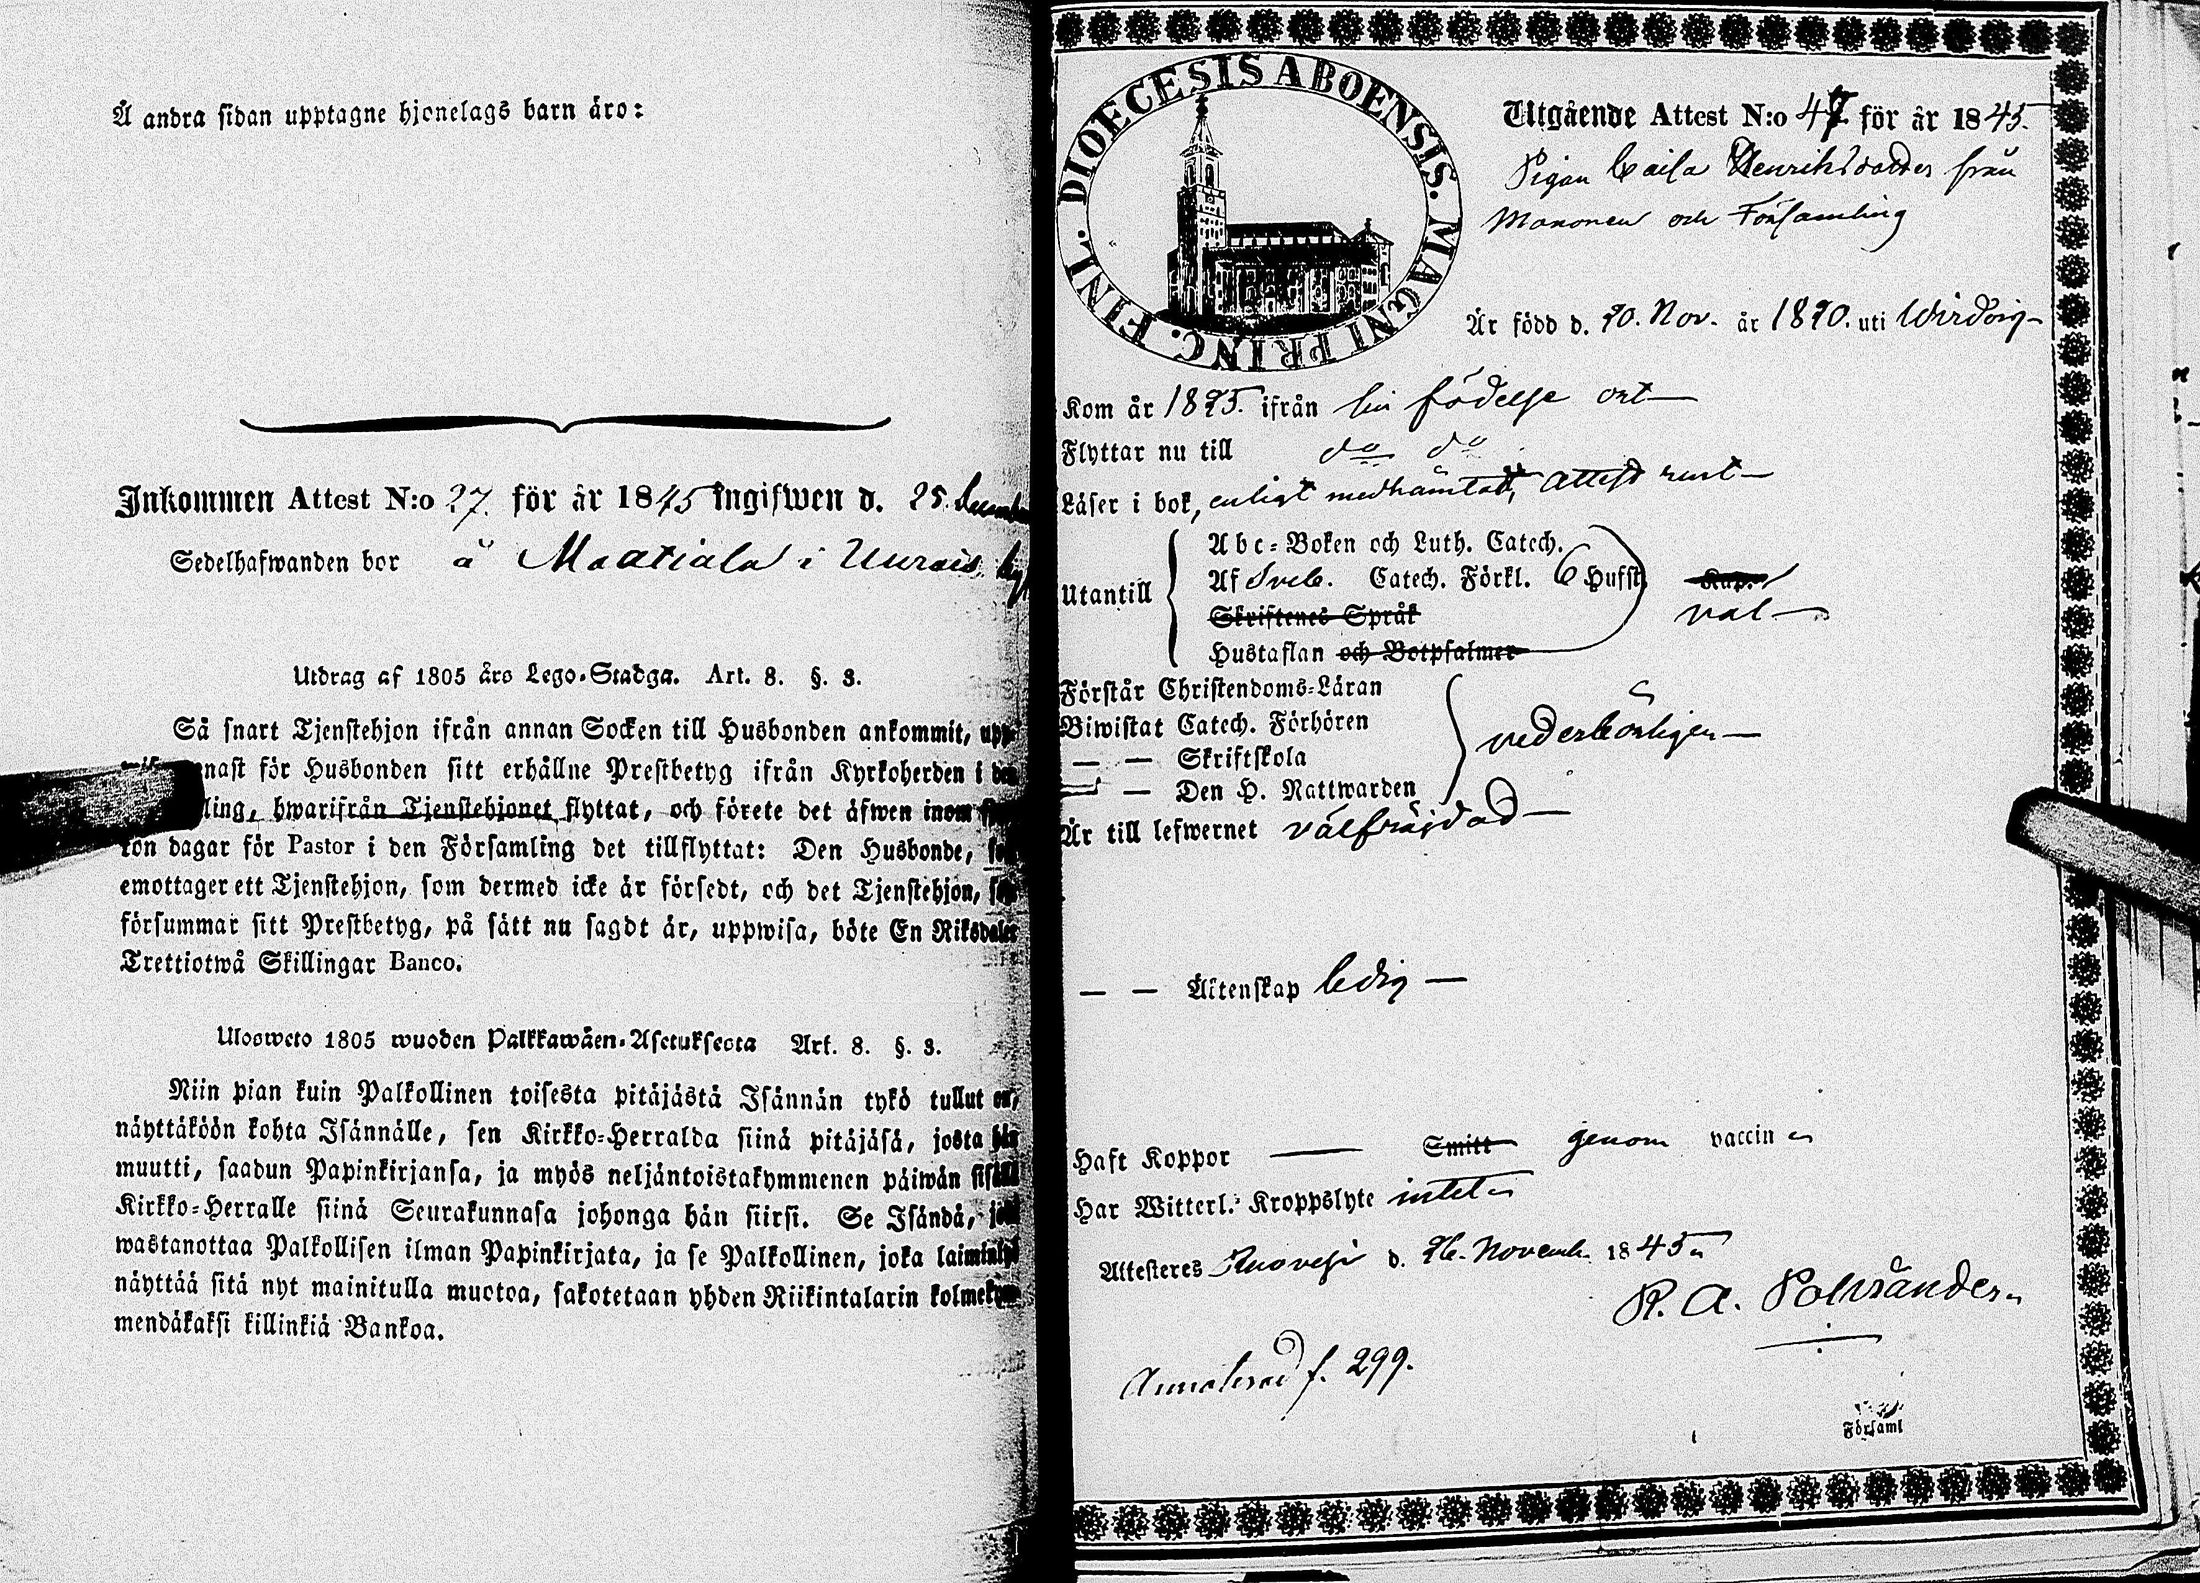 Å andra sidan upptagne hjonelags barn äro:
Inkommen Attest N:o 27. för år 1845 ingifwen d. 25.
Sedelhafwanden bor å Maatiala i Uurais
Utdrag af 1805 års Lego-Stadga. Art. 8. §. 3.
Så snart Tjenstehjon ifrån annan Socken till Husbonden ankommit,
för Husbonden sitt erhållne Prestbetyg ifrån Kyrkoherden i
hwarifrån Tjenstehjonet flyttat, och förete det äfwen inom
ton dagar för Pastor i den Församling det tillflyttat: Den Husbonde,
emottager ett Tjenstehjon, som dermed icke är försedt, och det Tjenstehjon,
försummar sitt Prestbetyg, på sätt nu sagdt är, uppwisa, böte En Riksdaler
Trettiotwå Skillingar Banco.
Ulosweto 1805 wuoden Palkkawäen-Asetuksesta Art. 8. §. 3.
Niin pian kuin Palkollinen toisesta pitäjästä Isännän tykö tullut on,
näyttäköön kohta Isännälle, sen Kirkko-Herralda siinä pitäjäsä, josta hän
muutti, saadun Papinkirjansa, ja myös neljäntoistakymmenen päiwän sisällä
Kirkko-Herralle siinä Seurakunnasa johonga hän siirsi. Se Isändä, joka
wastanottaa Palkollisen ilman Papinkirjata, ja se Palkollinen, joka laiminlyö
näyttää sitä nyt mainitulla muotoa, sakotetaan yhden Riikintalarin kolmekym
mendäkaksi killinkiä Bankoa.
DIOECESIS ABOENSIS. MAGNI PRINC. FINL.
Utgående Attest N:o 47 för år 1845.
Pigan Caisa Henriksdotter från
och Församling
Är född d. 20. Nov. år 1820. uti Wirdois
Kom år 1825. ifrån sin födelse ort
Flyttar nu till do do
Läser i bok, enligt medhämtad attest rent
Utantill
Abc-Boken och Luth. Catech.
Af Sveb. Catech. Förkl. 6 Hufst. Kap.
Skriftenes Språk
väl
Hustaflan och Botpsalmer
Förstår Christendoms-Läran
Biwistat Catech. Förhören
vederbörligen
— — Skriftskola
— — Den H. Nattwarden
Är till lefwernet välfräjdad
— — Äktenskap ledig
Haft Koppor — Smitt genom vaccin
Har Witterl. Kroppslyte intet
Attesteres Ruovesi d. 26. Novemb. 1845
R. A. Polviander
Annoterad f. 299.
Församl